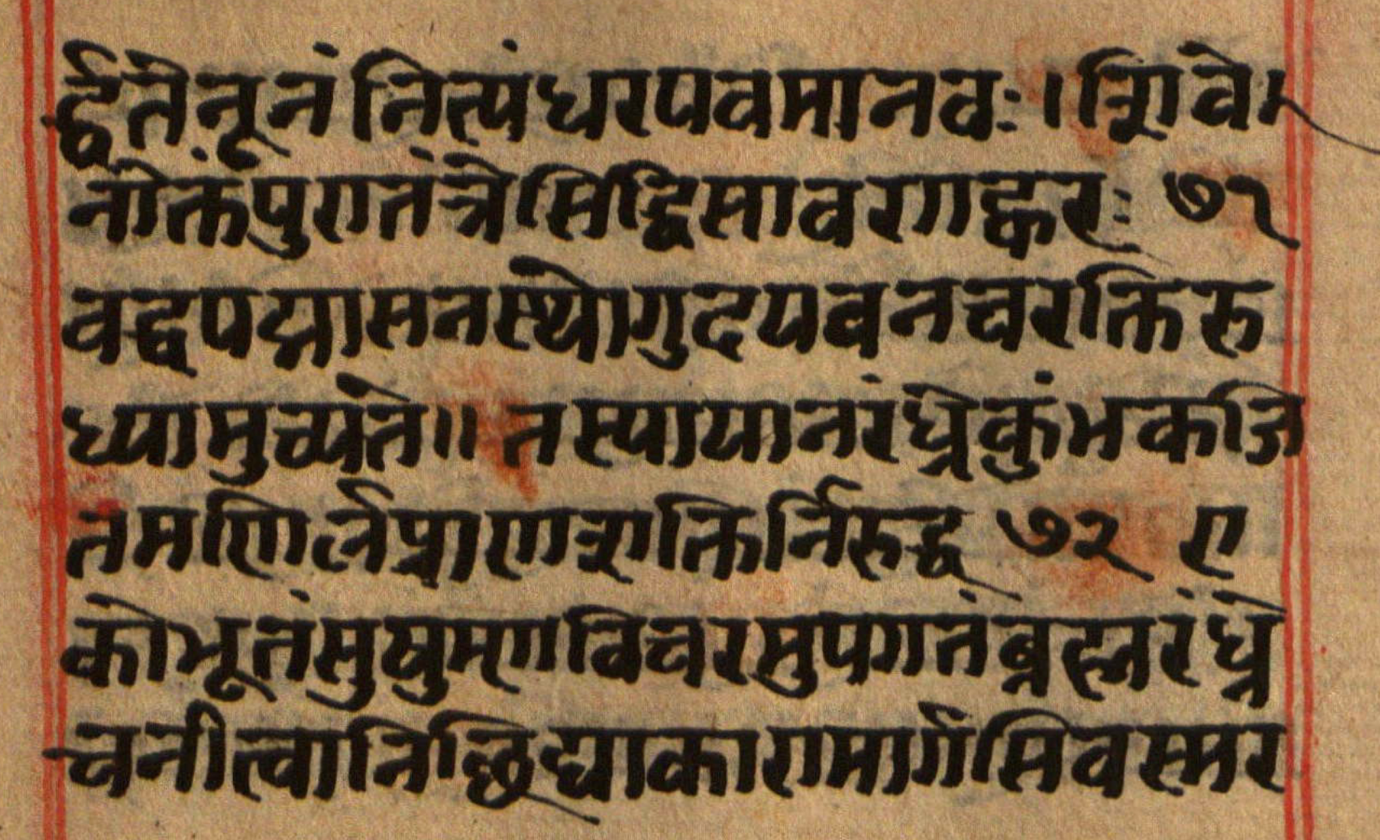 र्द्धतेनूनं नित्पंघरपवमानवः । शिवे
नोक्तंपुरातंत्रेसिद्धिसावरगाह्वरः ७१
वद्वपद्मासनस्थोगुदयवनचरक्तिरु
ध्यामुच्यते॥ तस्पायानरंध्रेकुंभकजि
तमणिर्नप्राणशक्तिर्निरुद्ध ७२ ए
कोभूतंसुषुम्णविचरसुपगतंब्रह्मरंध्रे
चनीत्वानिछिद्याकारामार्गेमिवस्मर